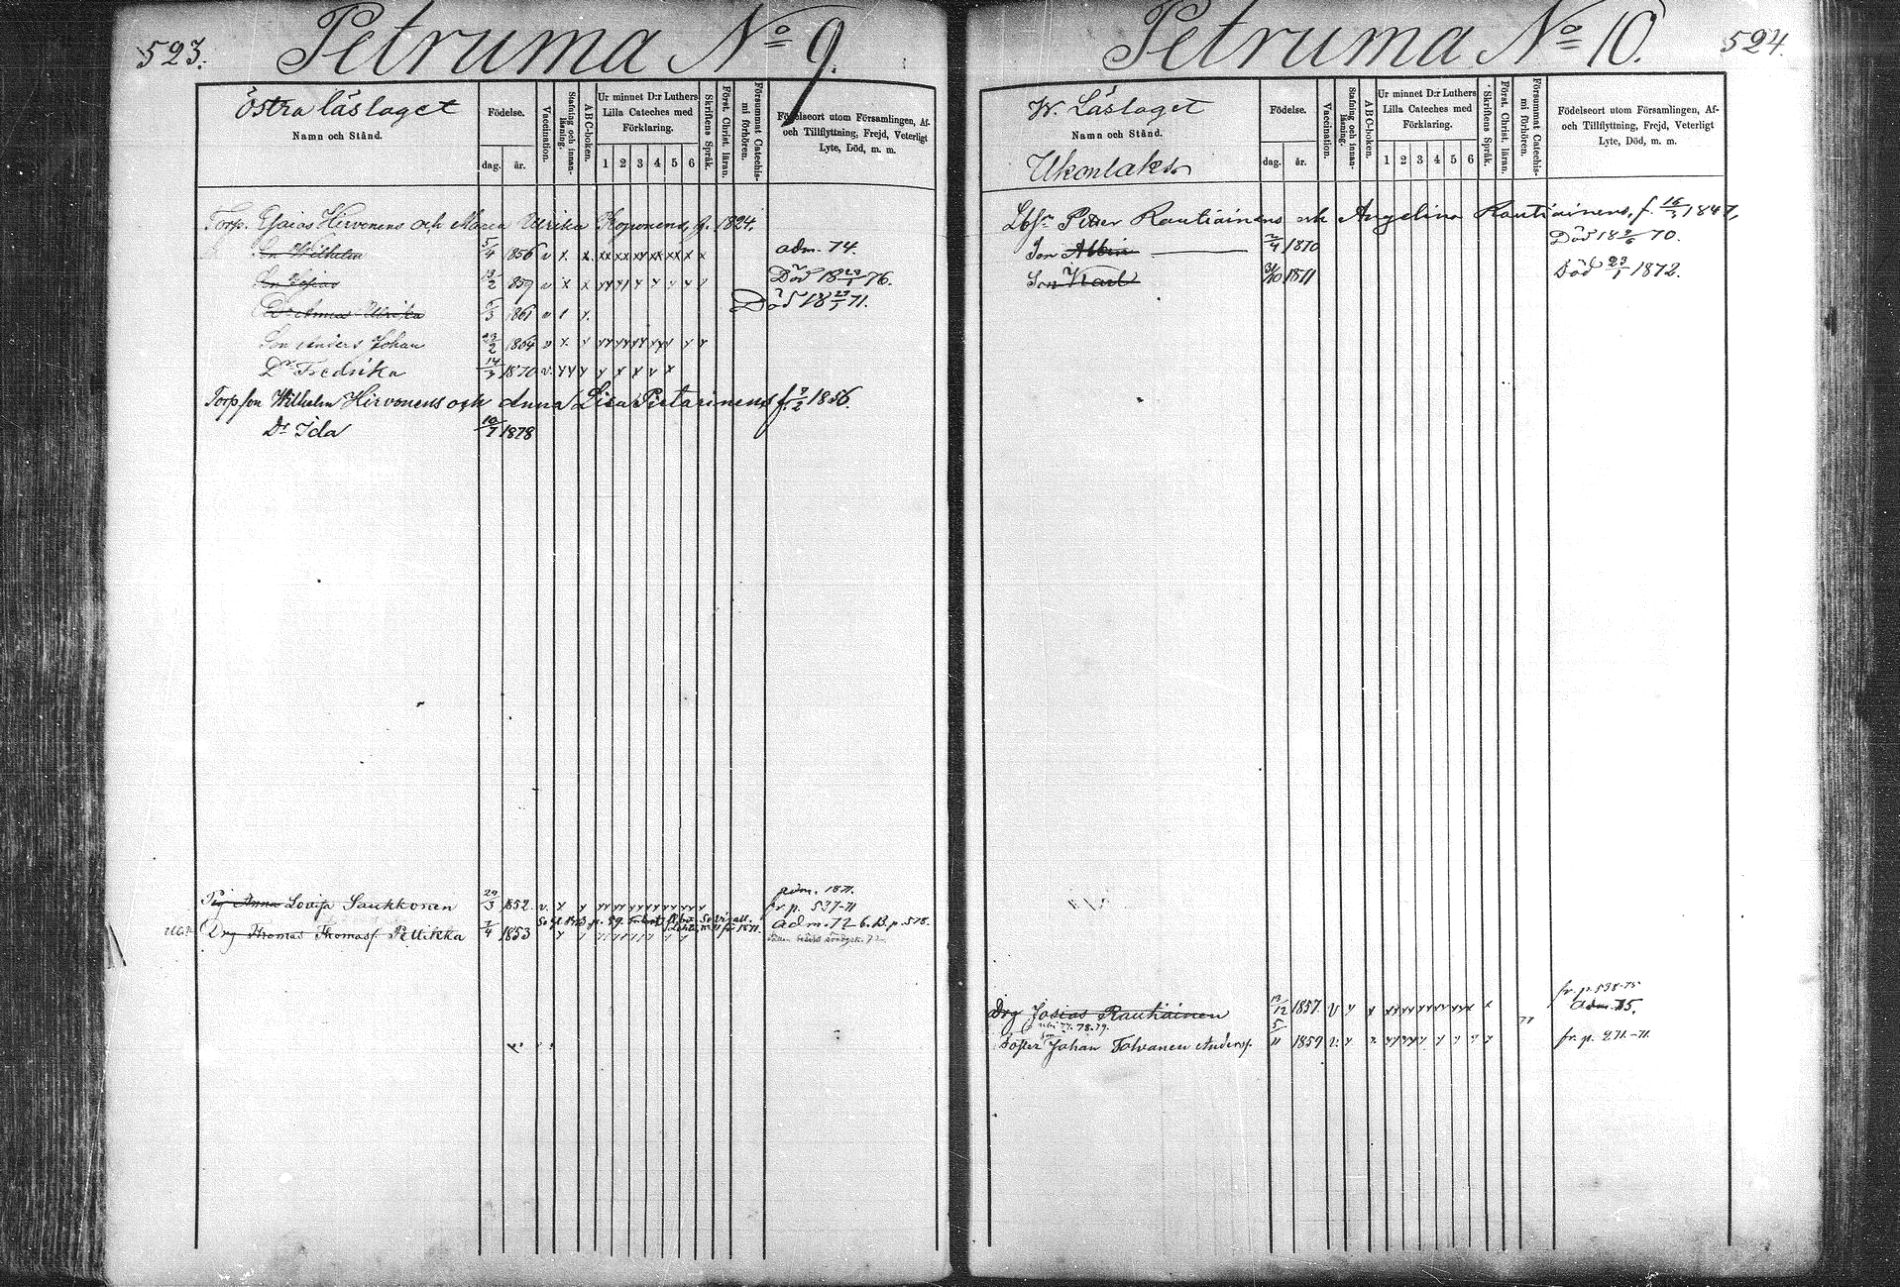 523.
Petruma No 9.
Östra läslaget
Namn och Stånd.
Födelse.
dag.
år.
Vaccination.
Stafning och innan-
läsning.
ABC-boken.
Ur minnet D:r Luthers
Lilla Cateches med
Förklaring.
1 2 3 4 5 6
Skriftens Språk.
Först. Christ. läran.
Försummat Catechis-
mi förhören.
Födelseort utom Församlingen, Af-
och Tillflyttning, Frejd, Veterligt
Lyte, Död, m. m.
Torp. Esaias Hirvonens och Maria Ulrika Koponens, f. 1824,
Sn Wilhelm 5/4 1856 v x x. adm. 74.
Sn Josias 859 v x x Död 18 76.
Ulrika 1861 v Död 18 71.
Son Anders Johan 1864 v x
Dr Fredrika 1870 v.
Torpson Wilhelm Hirvonens och Anna Lisa Pietarinens f. 1856.
Dr Ida 10/7 1878
Pig Anna Lovisa Saukkonen 29/3 1852. v. adm. 1871.
fr p. 537-71
Drg Thomas Thomasf. Pettikka 7/4 1853 adm. 72 b. B. p. 578.
524.
Petruma No 10.
W. Läslaget
Namn och Stånd.
Ukonlaks
Födelse.
dag.
år.
Vaccination.
Stafning och innan-
läsning.
ABC-boken.
Ur minnet D:r Luthers
Lilla Cateches med
Förklaring.
1 2 3 4 5 6
Skriftens Språk.
Först. Christ. läran.
Försummat Catechis-
mi förhören.
Födelseort utom Församlingen, Af-
och Tillflyttning, Frejd, Veterligt
Lyte, Död, m. m.
Petter Rautiainens och Angelina Rautiainens, f. 1847,
Son Albin 1870 Död 18 70.
Son Karl 1871 Död 23/1 1872.
fr. p. 538-75
Drg Josias Rautiainen 13/12 1857 v adm. 75.
77. 78. 79.
Foster Johan Tolvanen Andersf. 5/11 1859 v. fr. p. 271-71.